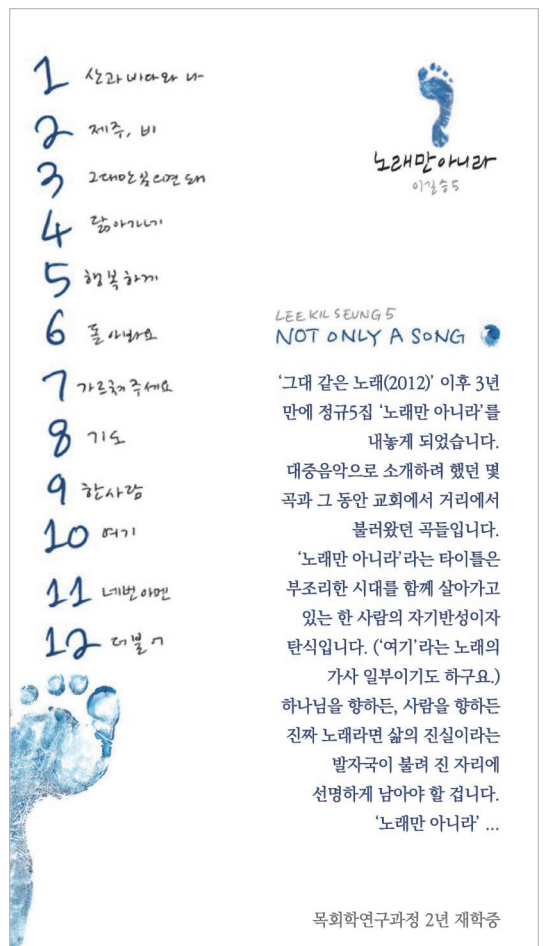 1 산과 바다와 나
2 제주, 비
3 그대만 있으면 돼
4 닮아가네
5 행복하게
6 돌아봐요
7 가르쳐 주세요
8 기도
9 한사람
10 여기
11 네번 아멘
12 더불어
노래만 아니라
이길승5
LEE KIL SEUNG 5
NOT ONLY A SONG
‘그대 같은 노래(2012)’ 이후 3년
만에 정규5집 ‘노래만 아니라’를
내놓게 되었습니다.
대중음악으로 소개하려 했던 몇
곡과 그 동안 교회에서 거리에서
불러왔던 곡들입니다.
‘노래만 아니라’라는 타이틀은
부조리한 시대를 함께 살아가고
있는 한 사람의 자기반성이자
탄식입니다. (‘여기’라는 노래의
가사 일부이기도 하구요.)
하나님을 향하든, 사람을 향하든
진짜 노래라면 삶의 진실이라는
발자국이 불려 진 자리에
선명하게 남아야 할 겁니다.
‘노래만 아니라’ ...
목회학연구과정 2년 재학중